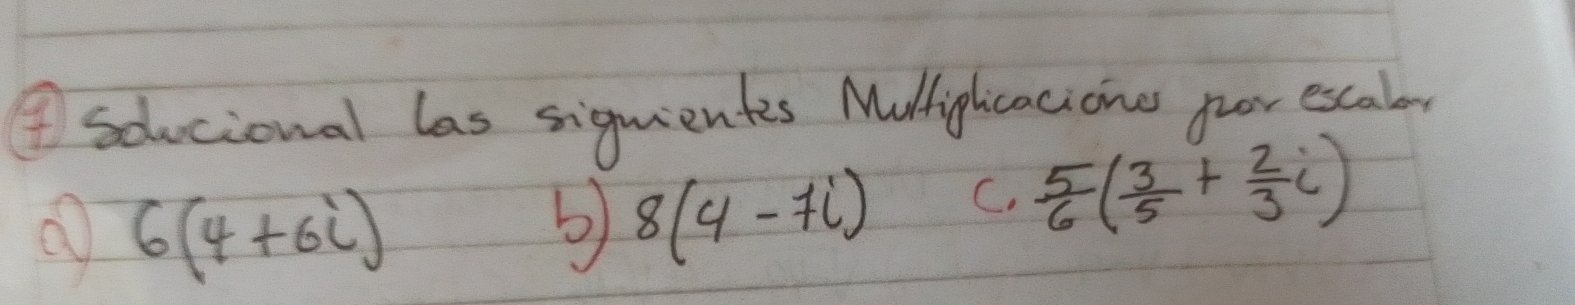 7 Solucional las siguientes Multiplicaciones por escalar
a) 6(4+6i) b) 8(4-7i) c. 5/6(3/5 + 2/3 i)